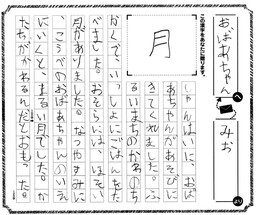 おばあちゃん
へ
みお
より
この漢字をあなたに贈ります。
月
しゃんはいに、おば
あちゃんがあそびに
きてくれました。ふ
るいまちのかわのち
かくで、いっしょにごはんをた
べました。おそらには、ほそい
月がありました。なつやすみに
、こうべのおばあちゃんのいえ
にいくと、まるい月でした。か
たちがかわるんだとおもった。